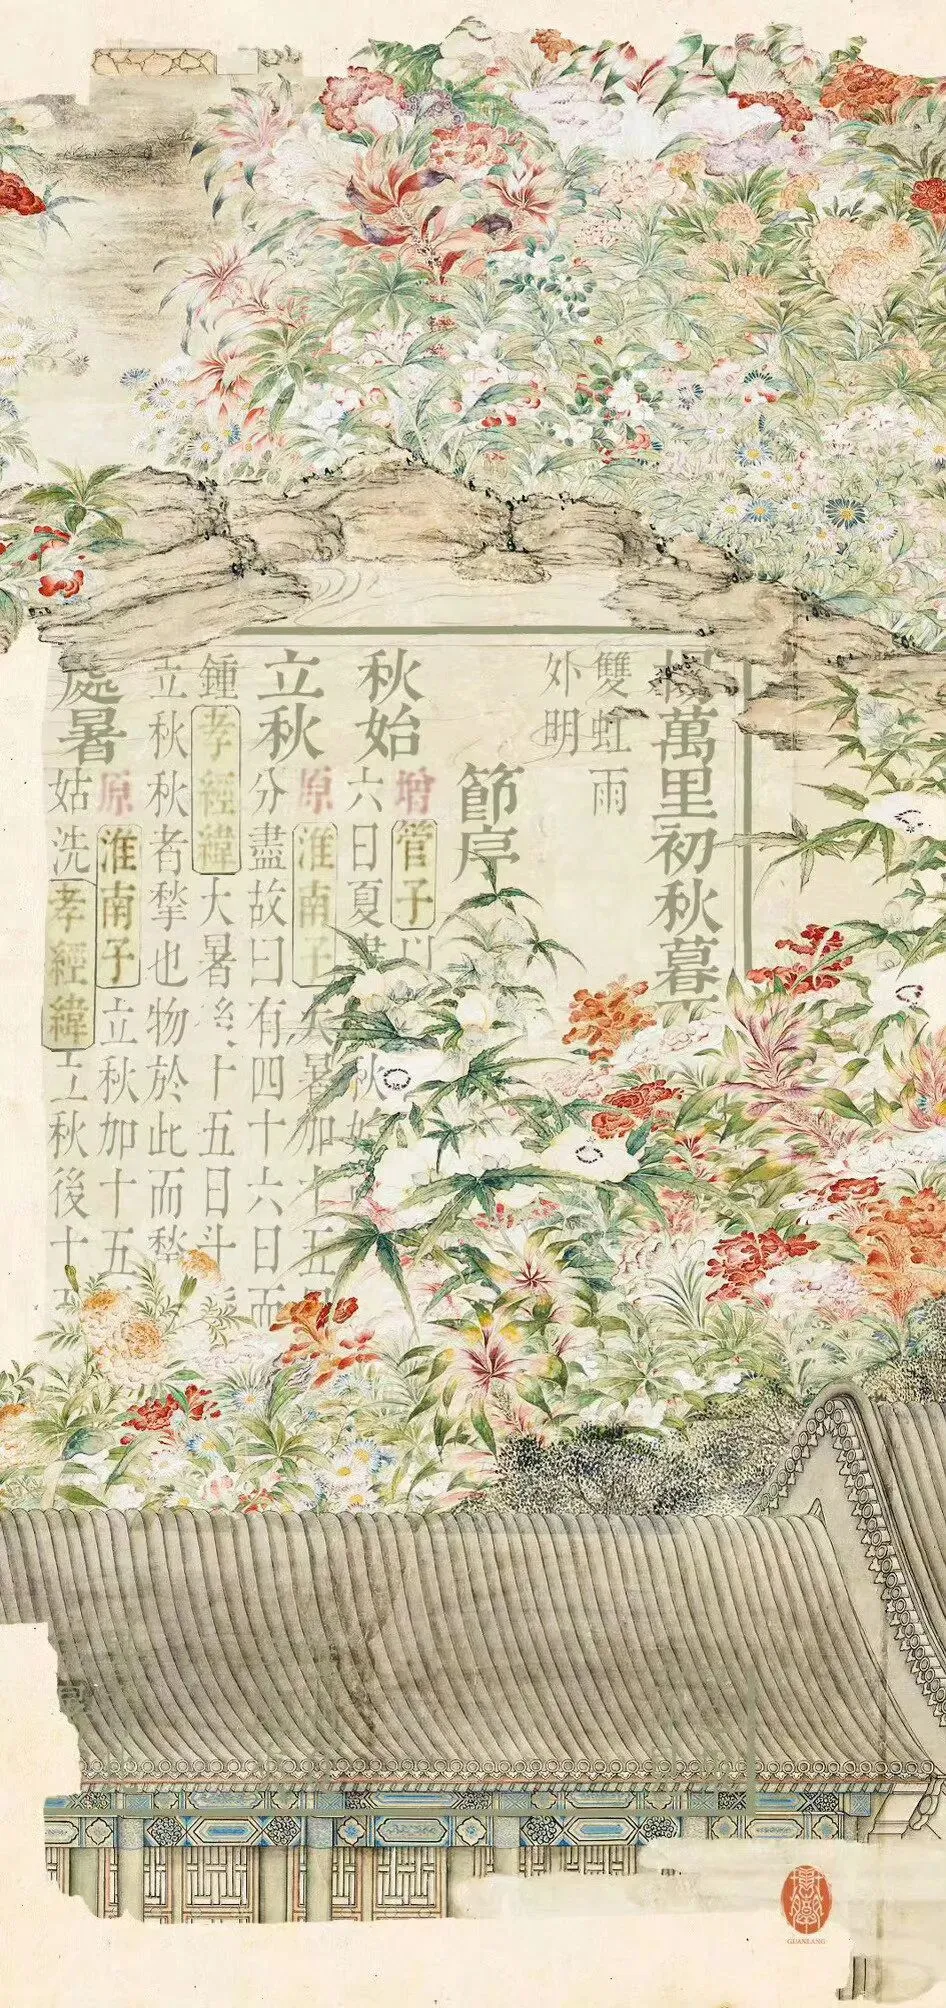 楊萬里初秋暮
雙虹雨
外明
節序
秋始
增管子
六日夏
秋始
立秋
原淮南子大暑加十五
分盡故曰有四十六日而
鍾孝經緯大暑後十五日斗
立秋秋者揫也物於此而揫
處暑
原淮南子立秋加十五
姑洗孝經緯立秋後十五
GUANLANG